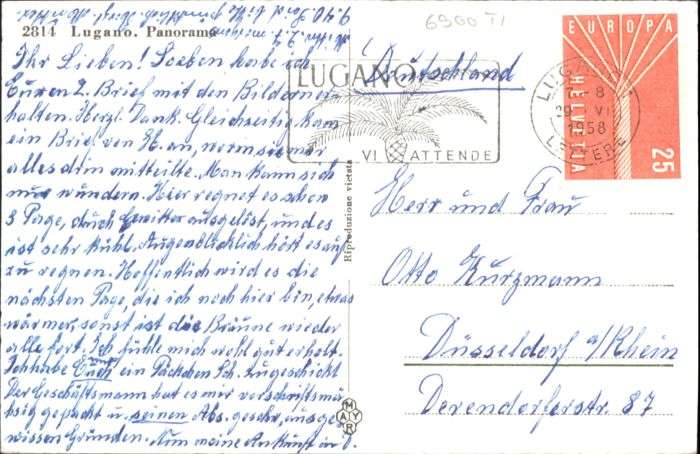 2814 Lugano. Panorama
Ihr Lieben! Soeben habe ich
Euren 2. Brief mit den Bildern er-
halten. Herzl. Dank. Gleichzeitig kam
ein Brief von H. an, worin sie mir
alles drin mitteilte. Man kann sich
nur wundern. Hier regnet es schon
3 Tage, durch Gewitter ausgelöst, und es
ist sehr kühl. Augenblicklich hört es auf
zu regnen. Hoffentlich wird es die
nächsten Tage, die ich noch hier bin, etwas
wärmer, sonst ist die Bräune wieder
alle fort. Ich fühle mich wohl gut erholt.
Ich habe Euch ein Päckchen Sch. zugeschickt
Der Geschäftsmann hat es mir vorschriftsmä-
ssig gepackt u. seinen Abs. geschr., aus ge-
wissen Gründen. Nun meine Ankunft in D.
6900 TI
LUGANO
VI ATTENDE
Deutschland
LUGANO 1
29 VI
1958
LETTERE
EUROPA
HELVETIA
25
Riproduzione vietata
MAYR
Herr und Frau
Otto Kurzmann
Düsseldorf a/Rhein
Derendorferstr. 87